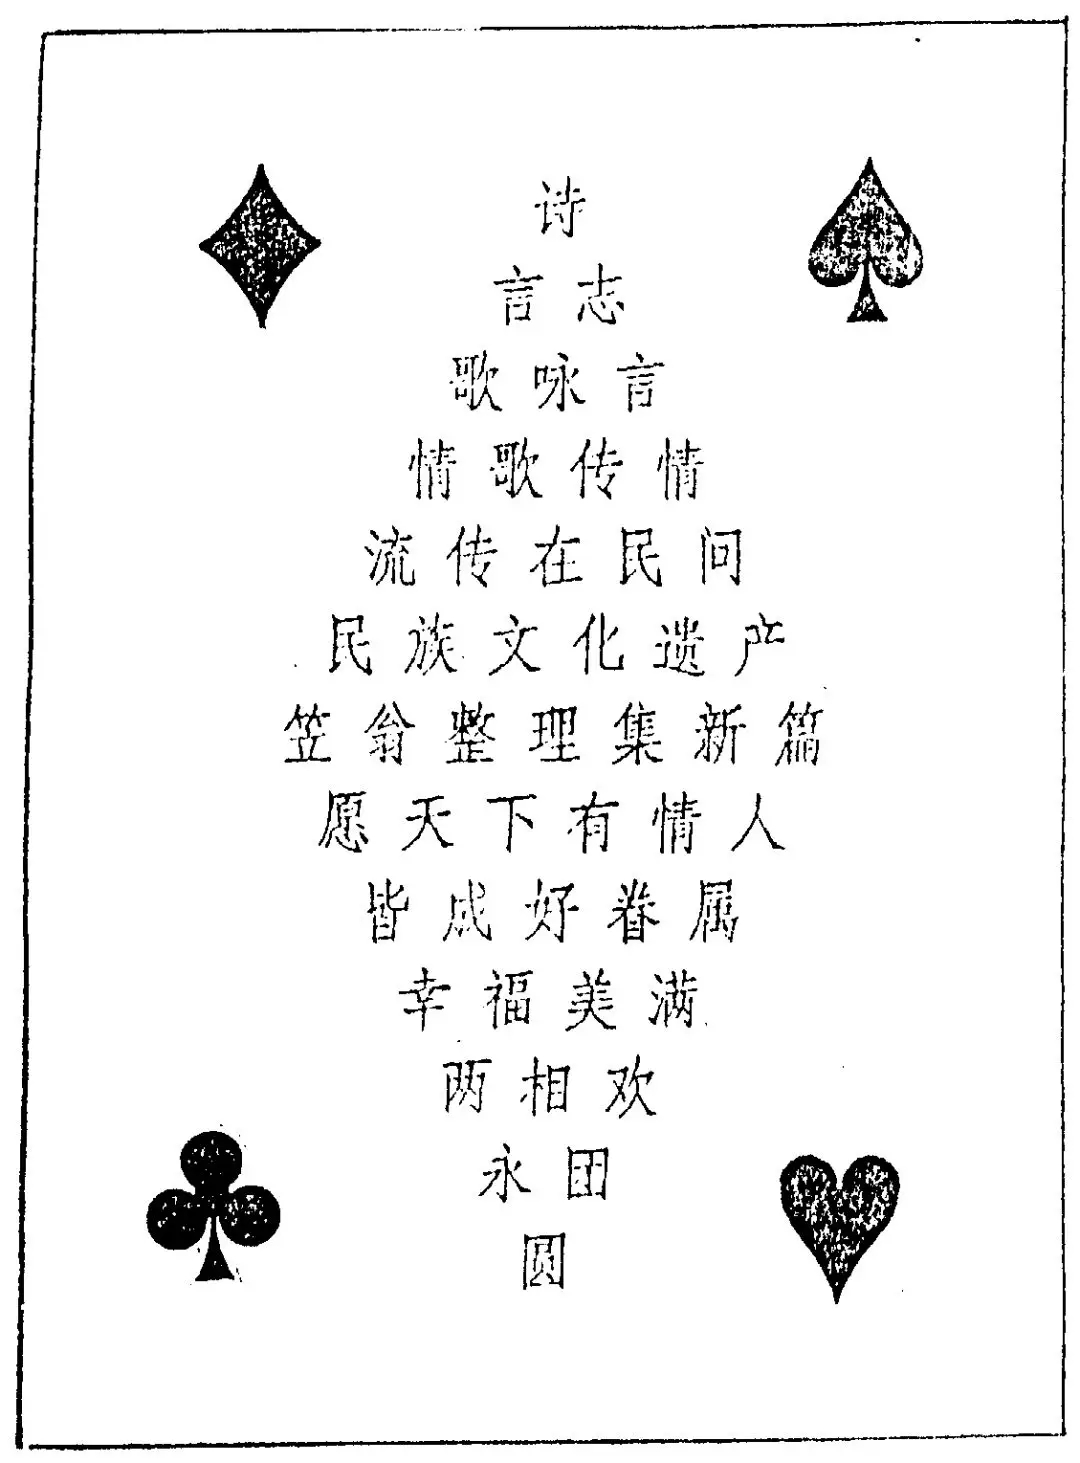 诗
言志
歌咏言
情歌传情
流传在民间
民族文化遗产
笠翁整理集新篇
愿天下有情人
皆成好眷属
幸福美满
两相欢
永团
圆